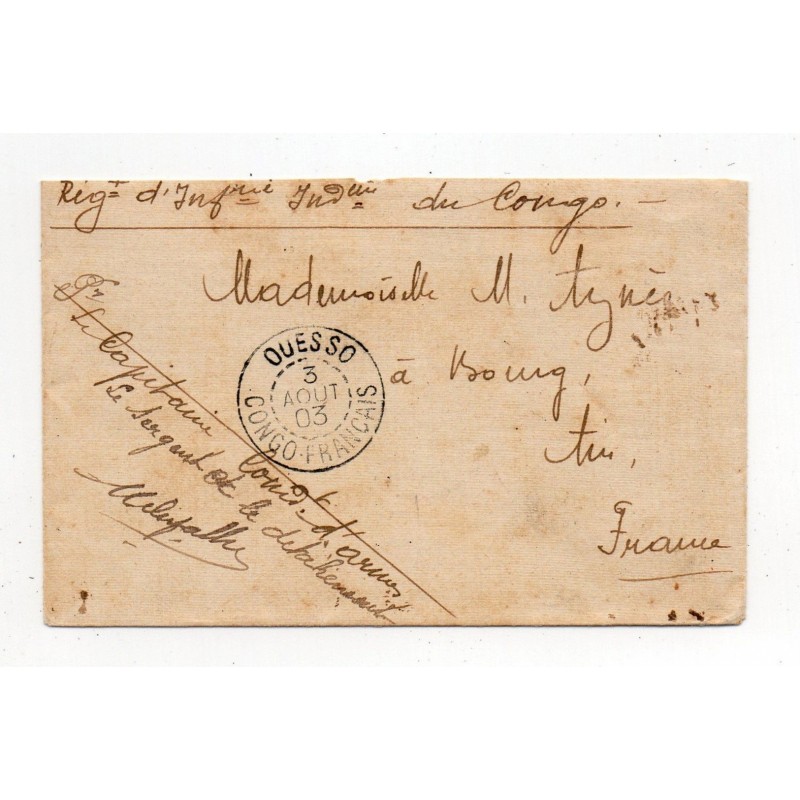 Régt d'Infrie Indne du Congo. —
Mademoiselle M. Aynès
à Bourg,
Ain,
France
OUESSO
3
AOUT
03
CONGO-FRANÇAIS
Pr Le Capitaine Comdt d'armes
Le Sergent et le détachement